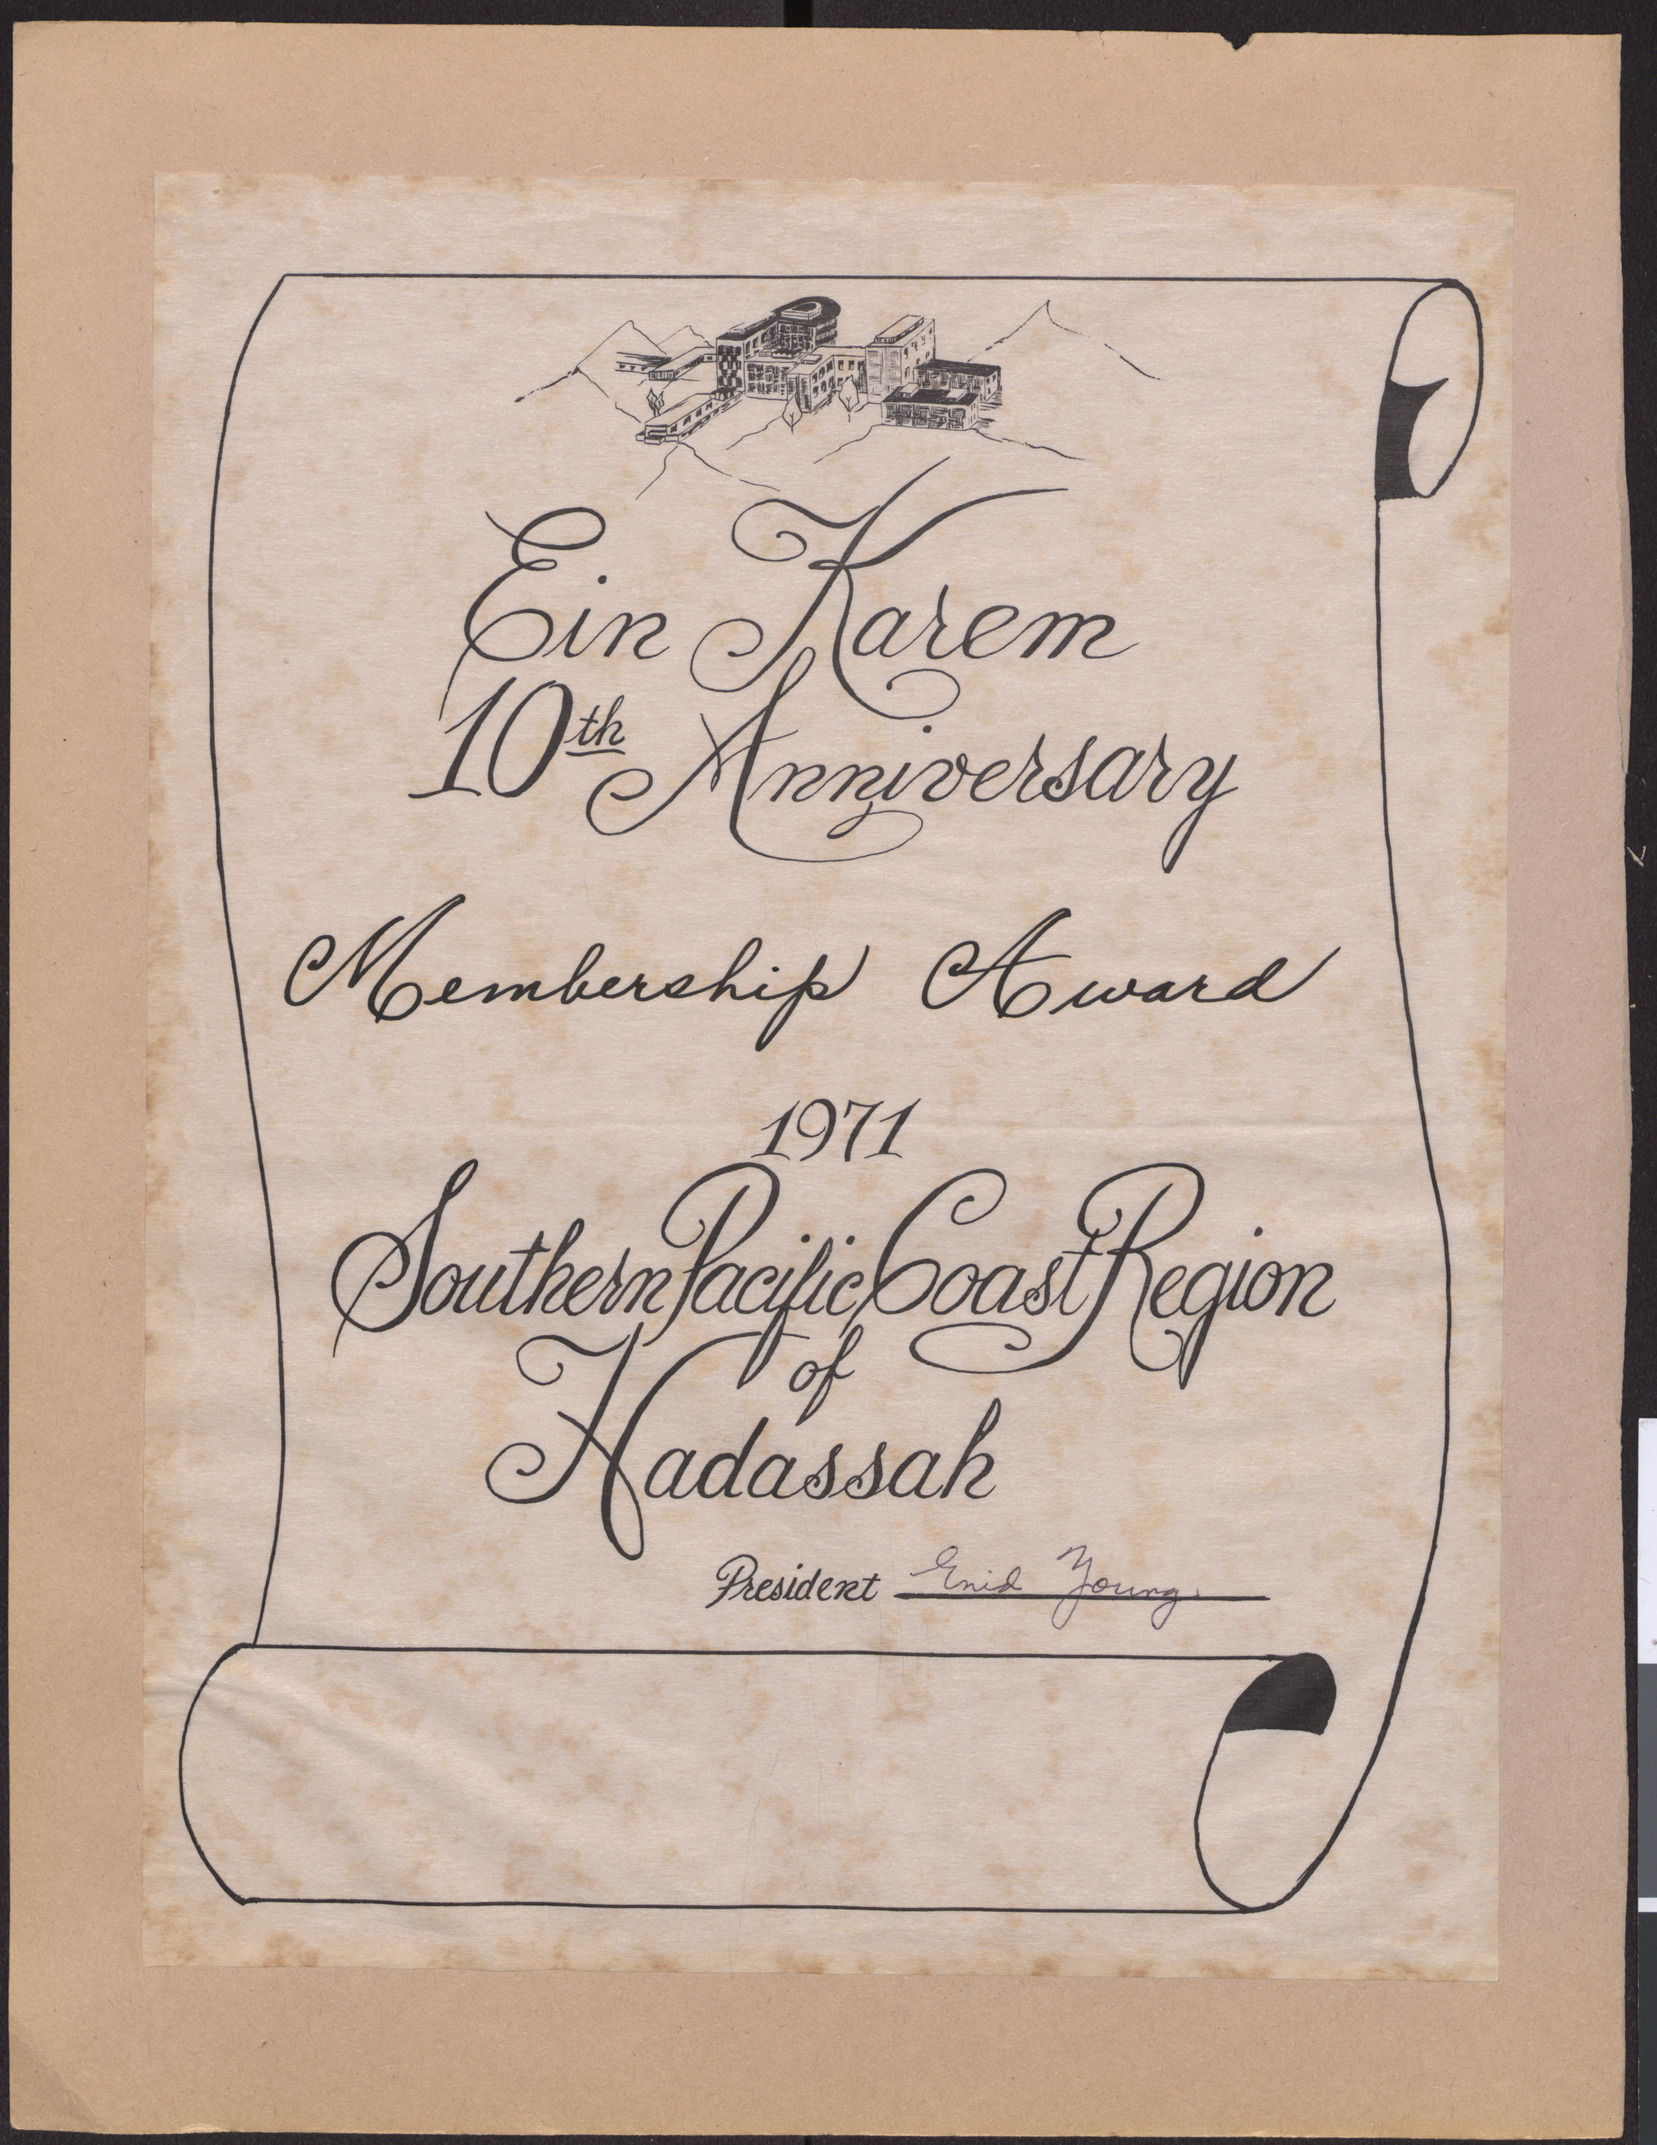 Ein Karem
10th Anniversary
Membership Award
1971
Southern Pacific Coast Region
of
Hadassah
President Enid Young